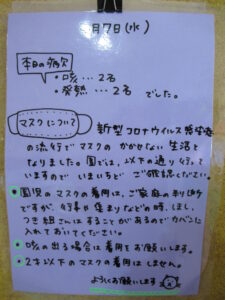 月7日(水)
本日の病欠
・咳…2名
・発熱…2名
でした。
マスクについて
新型コロナウイルス感染症
の流行でマスクのかかせない生活と
なりました。園では、以下の通り行って
いますのでいまいちどご確認ください。
園児のマスクの着用は、ご家庭の判断
ですが、行事や集まりなどの時、ほし、
つき組さんはすることがあるのでカバンに
入れておいてください。
咳の出る場合は着用をお願いします。
2才以下のマスクの着用はしません。
ようしくお願いします